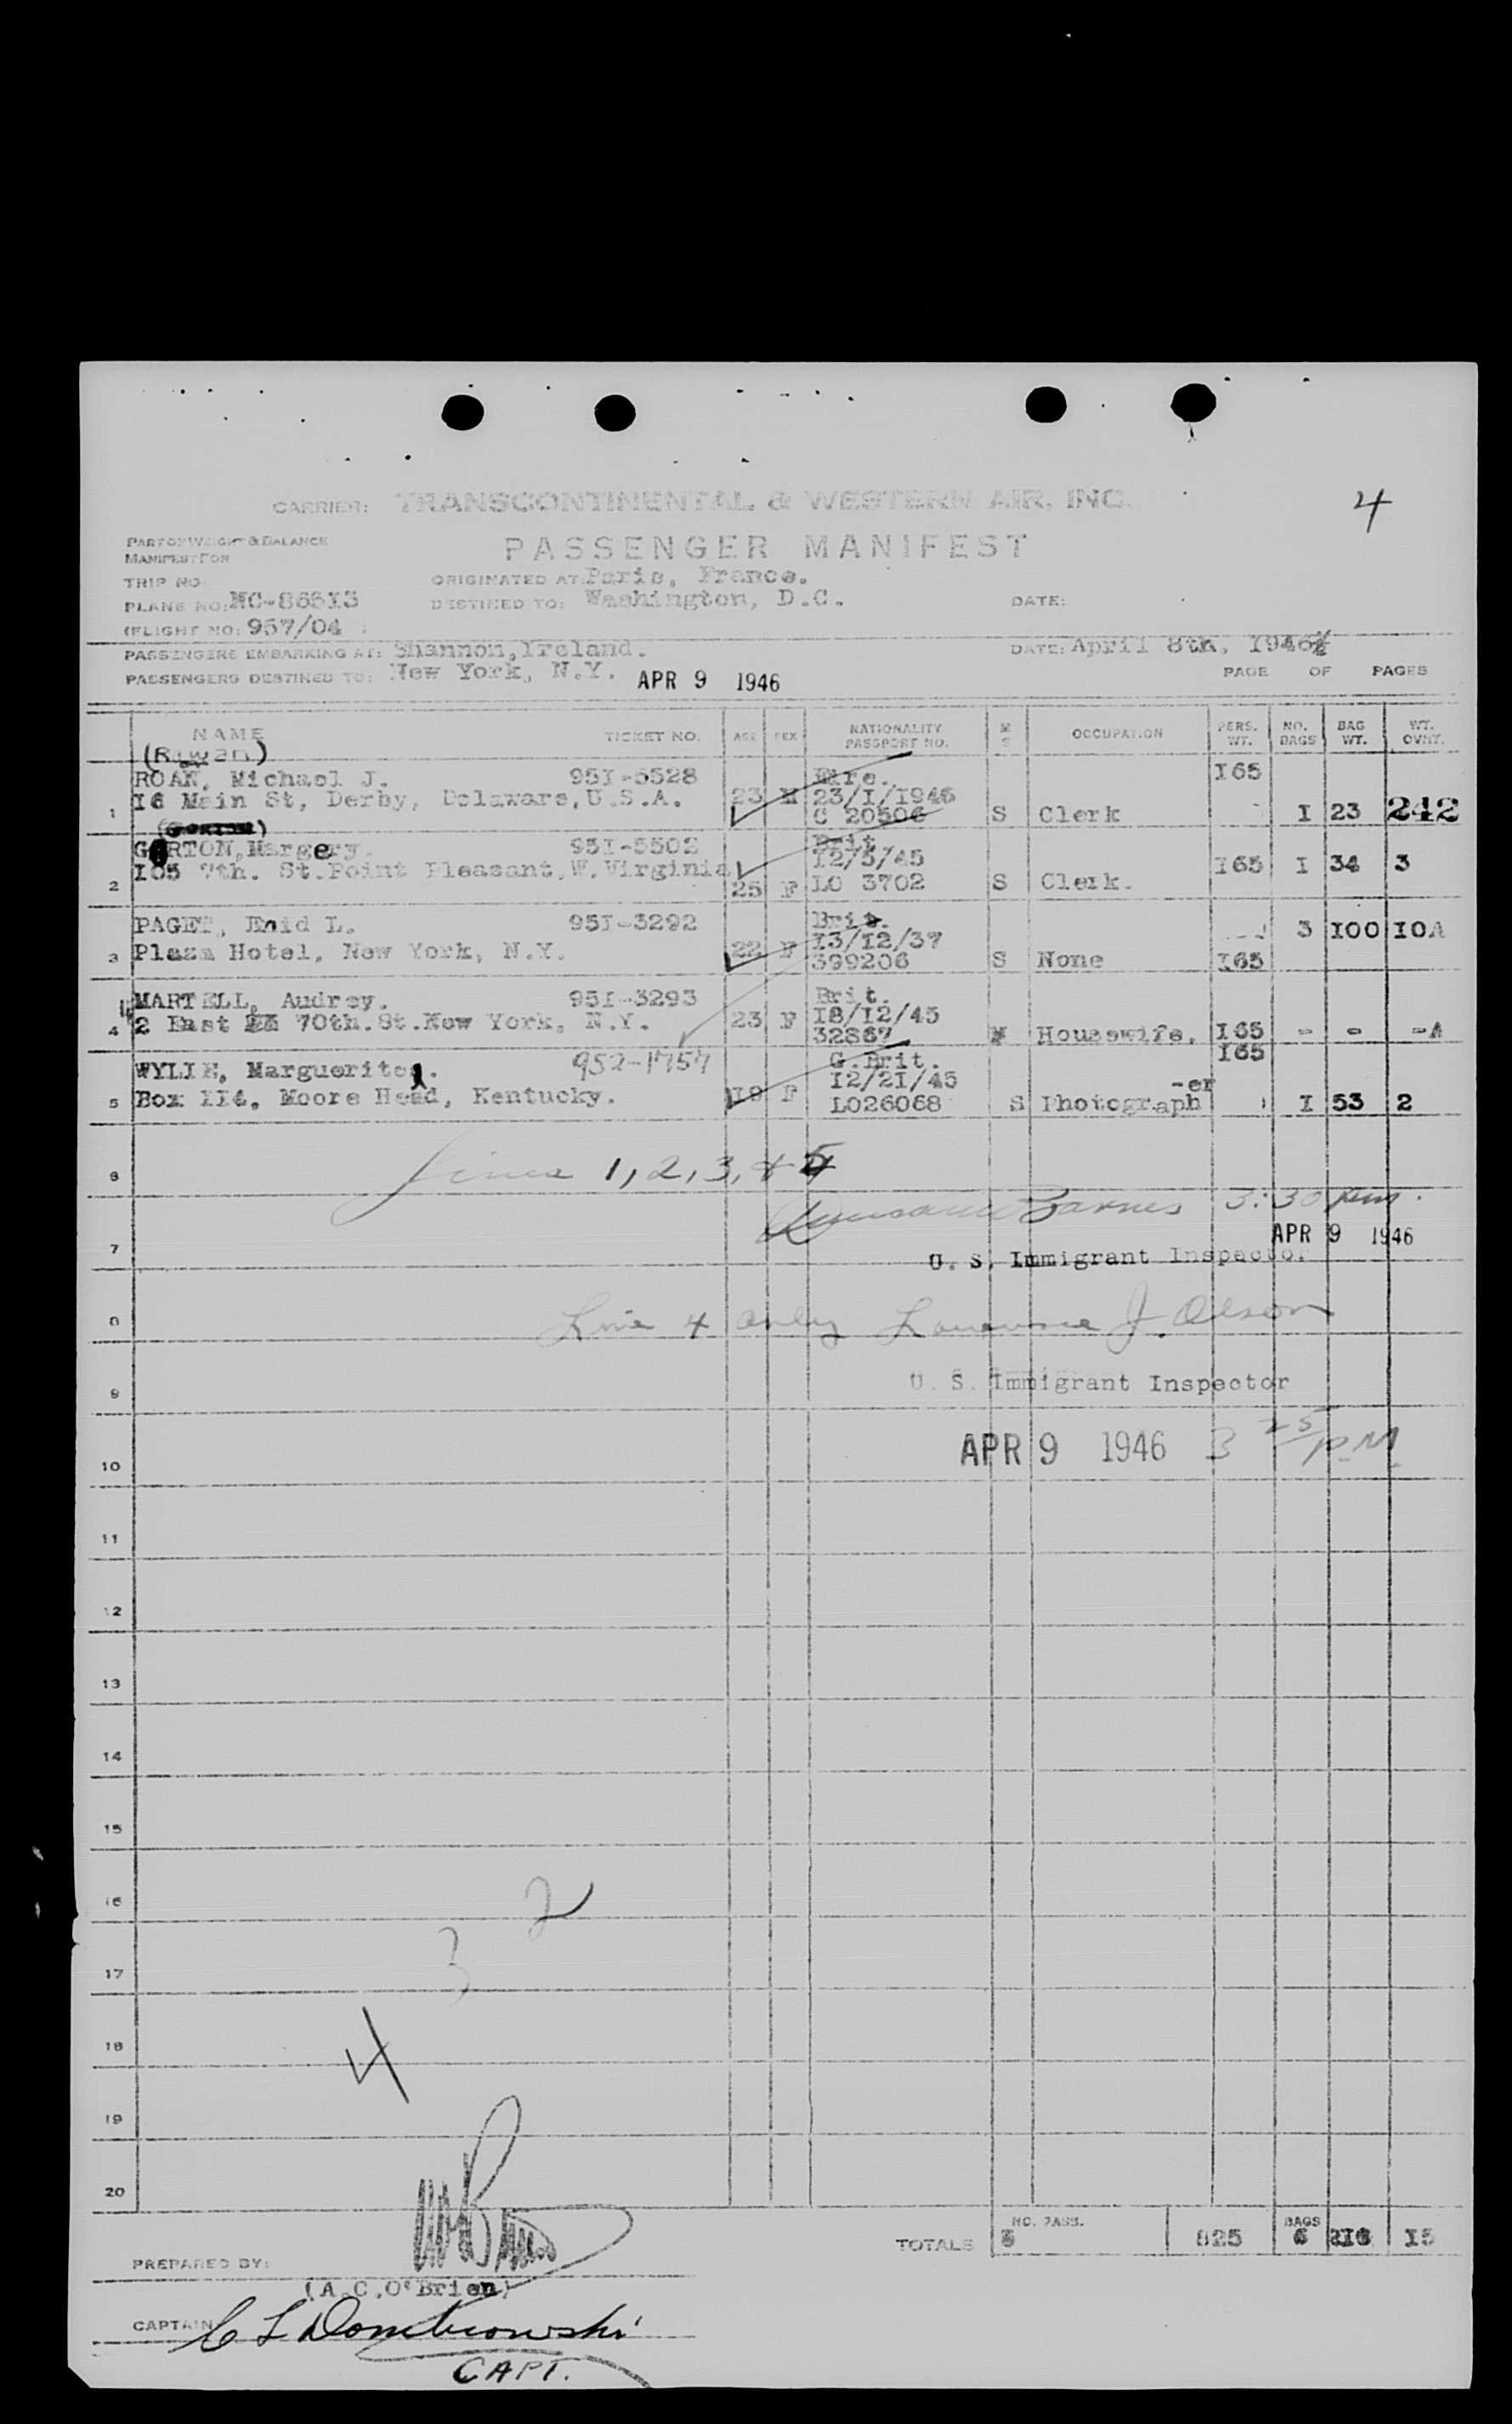 4
CARRIER: TRANSCONTINENTAL & WESTERN AIR, INC.
PART OF WEIGHT & BALANCE
MANIFEST FOR
PASSENGER MANIFEST
TRIP NO
ORIGINATED AT: Paris, France.
PLANE NO: NC-86513
DESTINED TO: Washington, D.C.
DATE:
(FLIGHT NO: 957/04
PASSENGERS EMBARKING AT: Shannon, Ireland.
DATE: April 8th, 1946
PASSENGERS DESTINED TO: New York, N.Y. APR 9 1946
PAGE OF PAGES
NAME TICKET NO. AGE SEX NATIONALITY PASSPORT NO. M S OCCUPATION PERS. WT. NO. BAGS BAG WT. WT. OVNT.
ROAN, Michael J. 95I-5528 Eire. I65
16 Main St, Derby, Delaware, U.S.A. 23 M 23/I/1946
1 C 20506 S Clerk I 23 242
GORTON, Margery. 95I-5502 Brit.
I05 7th. St. Point Pleasant, W. Virginia 12/5/45 I65 I 34 3
2 25 F LO 3702 S Clerk.
PAGET, Enid L. 95I-3292 Brit. 3 I00 I0A
3 Plaza Hotel, New York, N.Y. 22 F I3/I2/37
399206 S None I65
MARTELL, Audrey. 95I-3293 Brit.
4 2 East 70th. St. New York, N.Y. 23 F I8/I2/45
32867 M Housewife. I65 - - -A
WYLIE, Marguerite. 952-1757 G. Brit. I65
I2/2I/45 -er
5 Box II4, Moore Head, Kentucky. I9 F LO26068 S Photograph I 53 2
6 Lines 1, 2, 3, & 5
Barnes 3:30 pm.
7 APR 9 1946
U. S. Immigrant Inspector
8 Line 4 only Lawrence J. Olson
9 U. S. Immigrant Inspector
10 APR 9 1946 3 25 PM
11
12
13
14
15
16 2
17 3
18 4
19
20
TOTALS NO. PASS. 5 825 BAGS 6 216 I5
PREPARED BY:
(A.C.O'Brien)
CAPTAIN C L Dombrowski
CAPT.